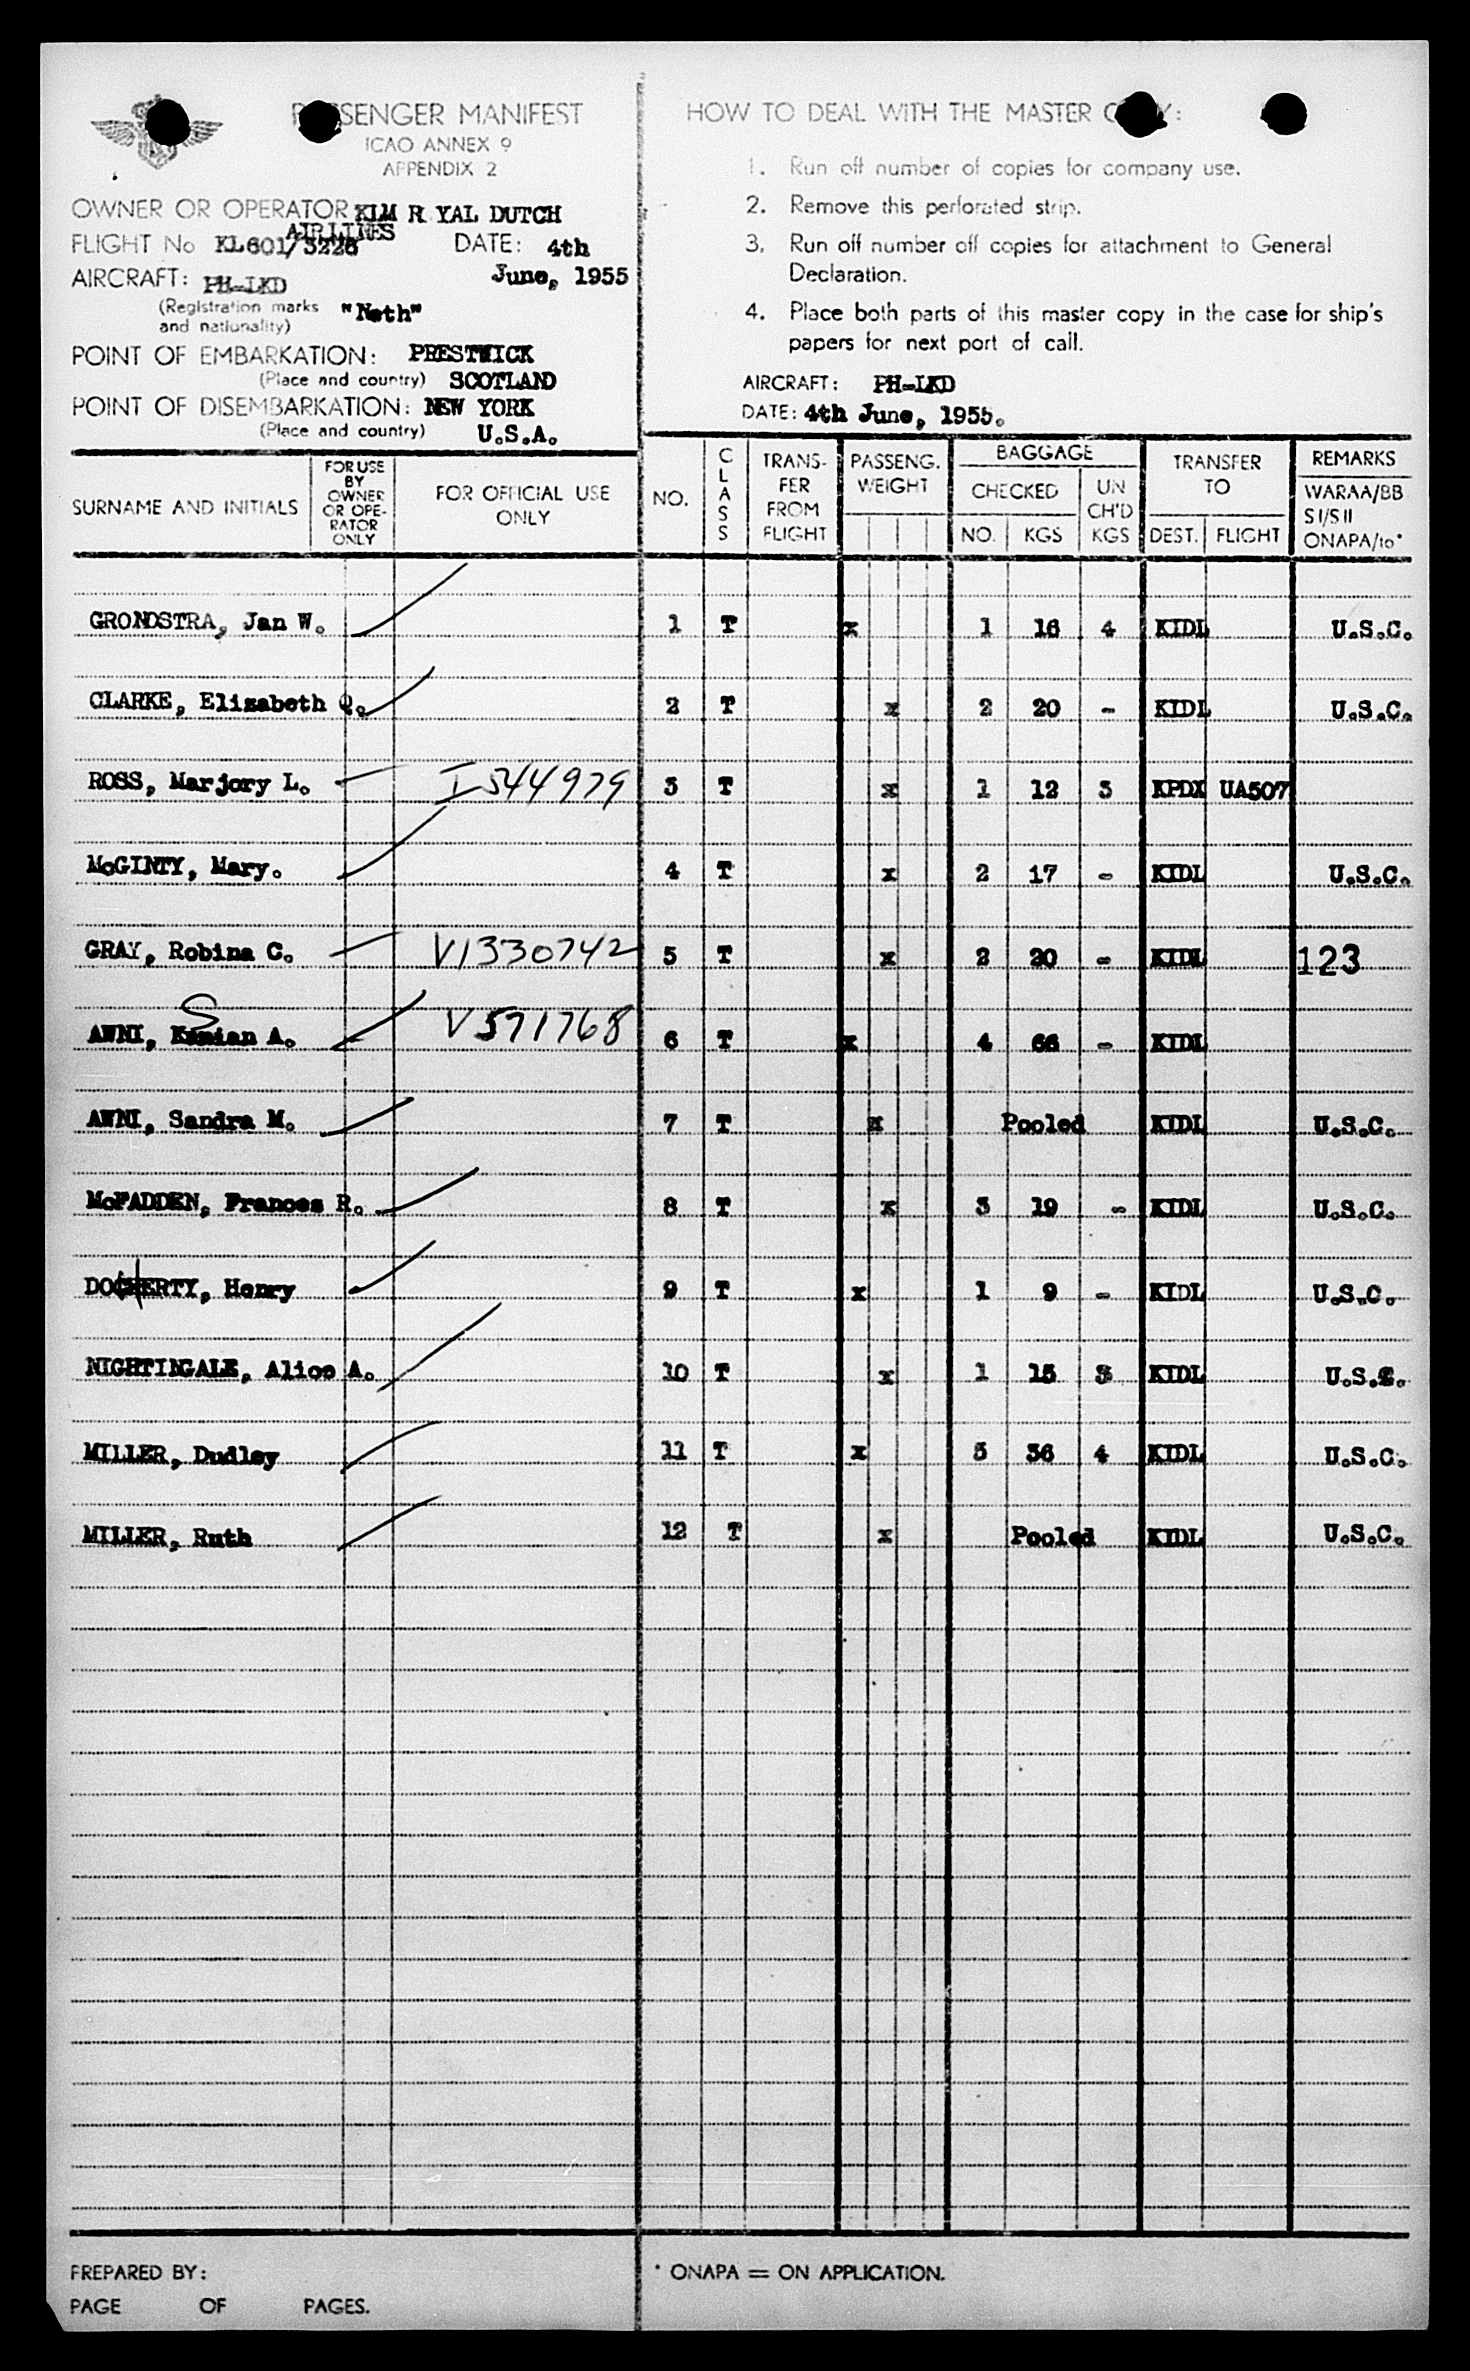 PASSENGER MANIFEST
ICAO ANNEX 9
APPENDIX 2
OWNER OR OPERATOR KLM R YAL DUTCH
AIRLINES
FLIGHT No KL601/3228 DATE: 4th
June, 1955
AIRCRAFT: PH-LKD
(Registration marks and nationality) "Neth"
POINT OF EMBARKATION: PRESTWICK
(Place and country) SCOTLAND
POINT OF DISEMBARKATION: NEW YORK
(Place and country) U.S.A.
HOW TO DEAL WITH THE MASTER COPY:
1. Run off number of copies for company use.
2. Remove this perforated strip.
3. Run off number off copies for attachment to General
Declaration.
4. Place both parts of this master copy in the case for ship's
papers for next port of call.
AIRCRAFT: PH-LKD
DATE: 4th June, 1955.
SURNAME AND INITIALS
FOR USE BY OWNER OR OPE-RATOR ONLY
FOR OFFICIAL USE ONLY
NO.
CLASS
TRANS-FER FROM FLIGHT
PASSENG. WEIGHT
BAGGAGE
CHECKED
NO. KGS
UN CH'D KGS
TRANSFER TO
DEST. FLIGHT
REMARKS
WARAA/BB
SI/SII
ONAPA/to*
GRONDSTRA, Jan W. 1 T x 1 16 4 KIDL U.S.C.
CLARKE, Elizabeth Q. 2 T x 2 20 - KIDL U.S.C.
ROSS, Marjory L. I 544979 3 T x 1 12 3 KPDX UA507
McGINTY, Mary. 4 T x 2 17 - KIDL U.S.C.
GRAY, Robina C. V1330742 5 T x 2 20 - KIDL 123
AWNI, A. V571768 6 T x 4 66 - KIDL
AWNI, Sandra M. 7 T x Pooled KIDL U.S.C.
McFADDEN, Frances R. 8 T x 3 19 - KIDL U.S.C.
DOCHERTY, Henry 9 T x 1 9 - KIDL U.S.C.
NIGHTINGALE, Alice A. 10 T x 1 15 3 KIDL U.S.C.
MILLER, Dudley 11 T x 3 36 4 KIDL U.S.C.
MILLER, Ruth 12 T x Pooled KIDL U.S.C.
PREPARED BY:
PAGE OF PAGES.
* ONAPA = ON APPLICATION.